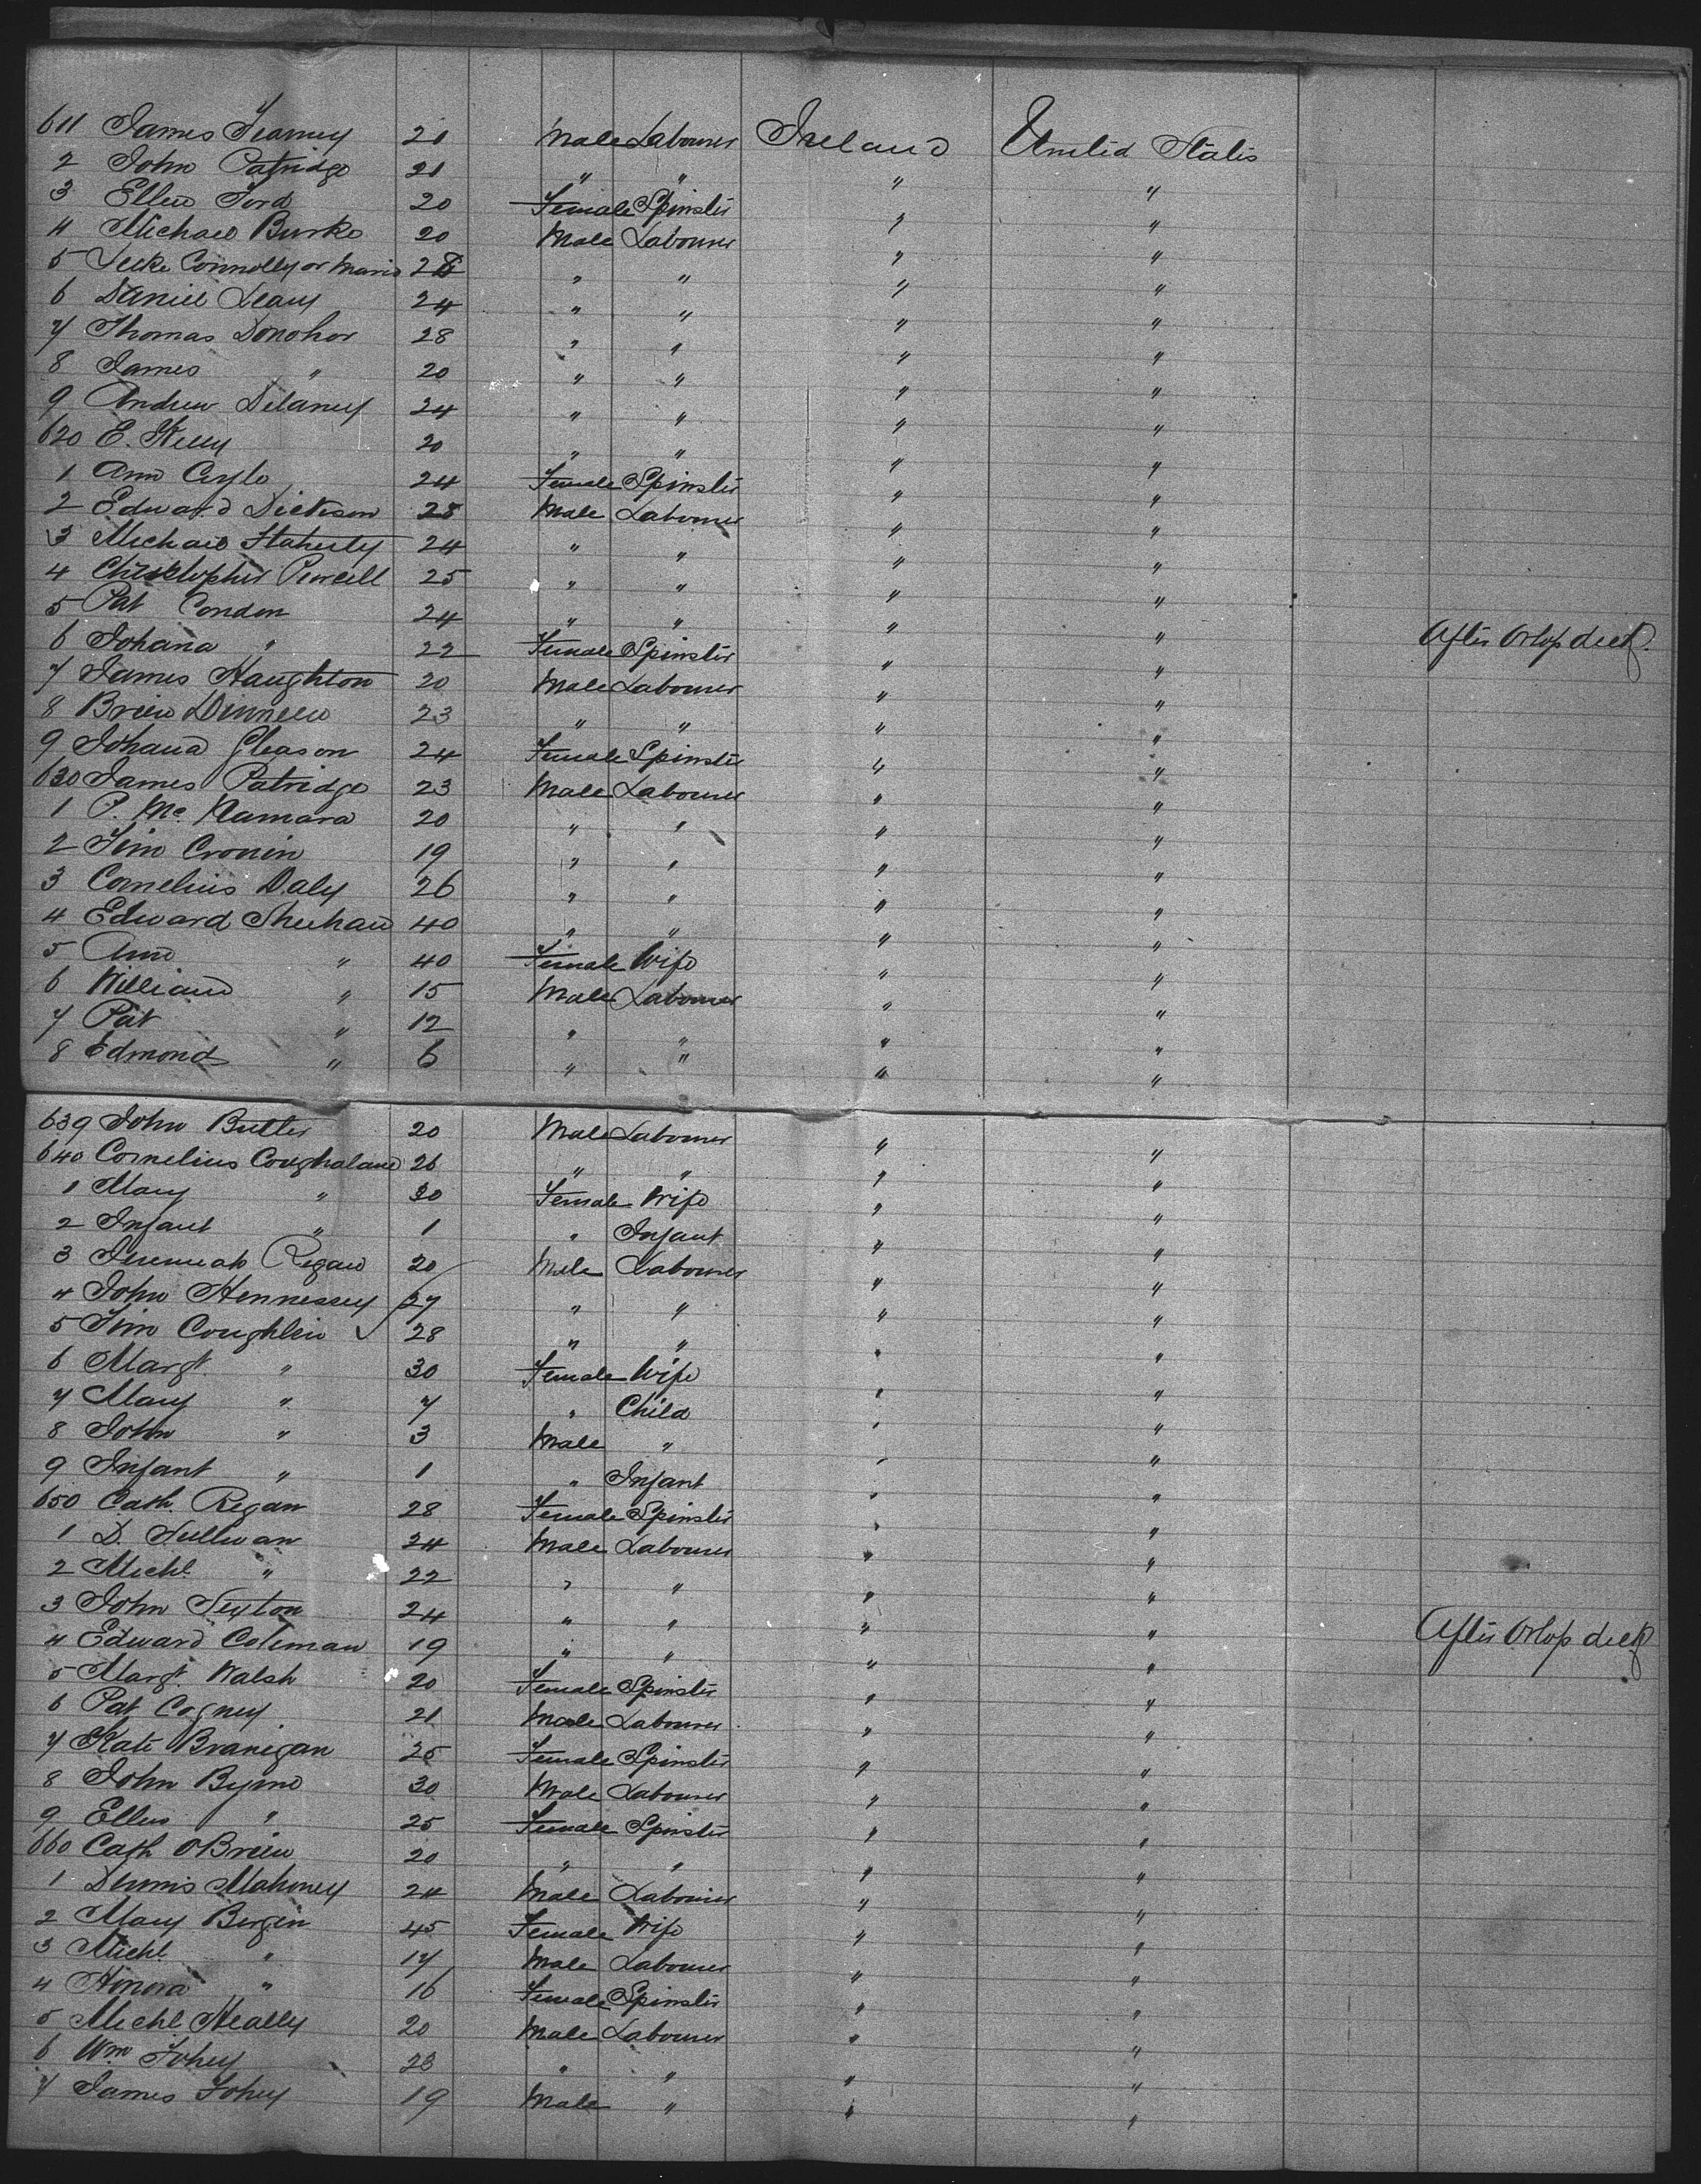 611 James Fearney 20 Male Labourer Ireland United States
2 John Patridge 21 " " " "
3 Ellen Ford 20 Female Spinster " "
4 Michael Burke 20 Male Labourer " "
5 Luke Connolly or 28 " " " "
6 Daniel Leary 24 " " " "
7 Thomas Donohor 28 " " " "
8 James " 20 " " " "
9 Andrew Delaney 24 " " " "
620 E. Kelly 20 " " " "
1 Ann 24 Female Spinster " "
2 Edward Dickson 25 Male Labourer " "
3 Michael Flaherty 24 " " " "
4 Christopher Purcell 25 " " " "
5 Pat Condon 24 " " " "
6 Johana " 22 Female Spinster " " After Orlop deck.
7 James Haughton 20 Male Labourer " "
8 Brien 23 " " " "
9 Johana Gleason 24 Female Spinster " "
630 James Patridge 23 Male Labourer " "
1 P. Mc Namara 20 " " " "
2 Tim Cronin 19 " " " "
3 Cornelius Daly 26 " " " "
4 Edward Sheehan 40 " " " "
5 Ann " 40 Female Wife " "
6 William " 15 Male Labourer " "
7 Pat " 12 " " " "
8 Edmond " 6 " " " "
639 John Butler 20 Male Labourer " "
640 Cornelius Coughaland 26 " " " "
1 Mary " 30 Female Wife " "
2 Infant " 1 " Infant " "
3 Jeremiah Regan 20 Male Labourer " "
4 John Hennessey 27 " " " "
5 Tim Coughlin 28 " " " "
6 Margt. " 30 Female Wife " "
7 Mary " 7 " Child " "
8 John " 3 Male " " "
9 Infant " 1 " Infant " "
650 Cath. Regan 28 Female Spinster " "
1 D. Sullivan 24 Male Labourer " "
2 Michl. " 22 " " " "
3 John Sexton 24 " " " "
4 Edward Coleman 19 " " " " After Orlop deck
5 Margt. Walsh 20 Female Spinster " "
6 Pat Cogney 21 Male Labourer " "
7 Kate Branigan 25 Female Spinster " "
8 John Byrne 30 Male Labourer " "
9 Ellen " 25 Female Spinster " "
660 Cath OBrien 20 " " " "
1 Dennis Mahoney 24 Male Labourer " "
2 Mary Bergin 45 Female Wife " "
3 Michl. " 17 Male Labourer " "
4 Honora " 16 Female Spinster " "
5 Michl Neally 20 Male Labourer " "
6 Wm Fohey 23 " " " "
7 James Fohey 19 Male " " "